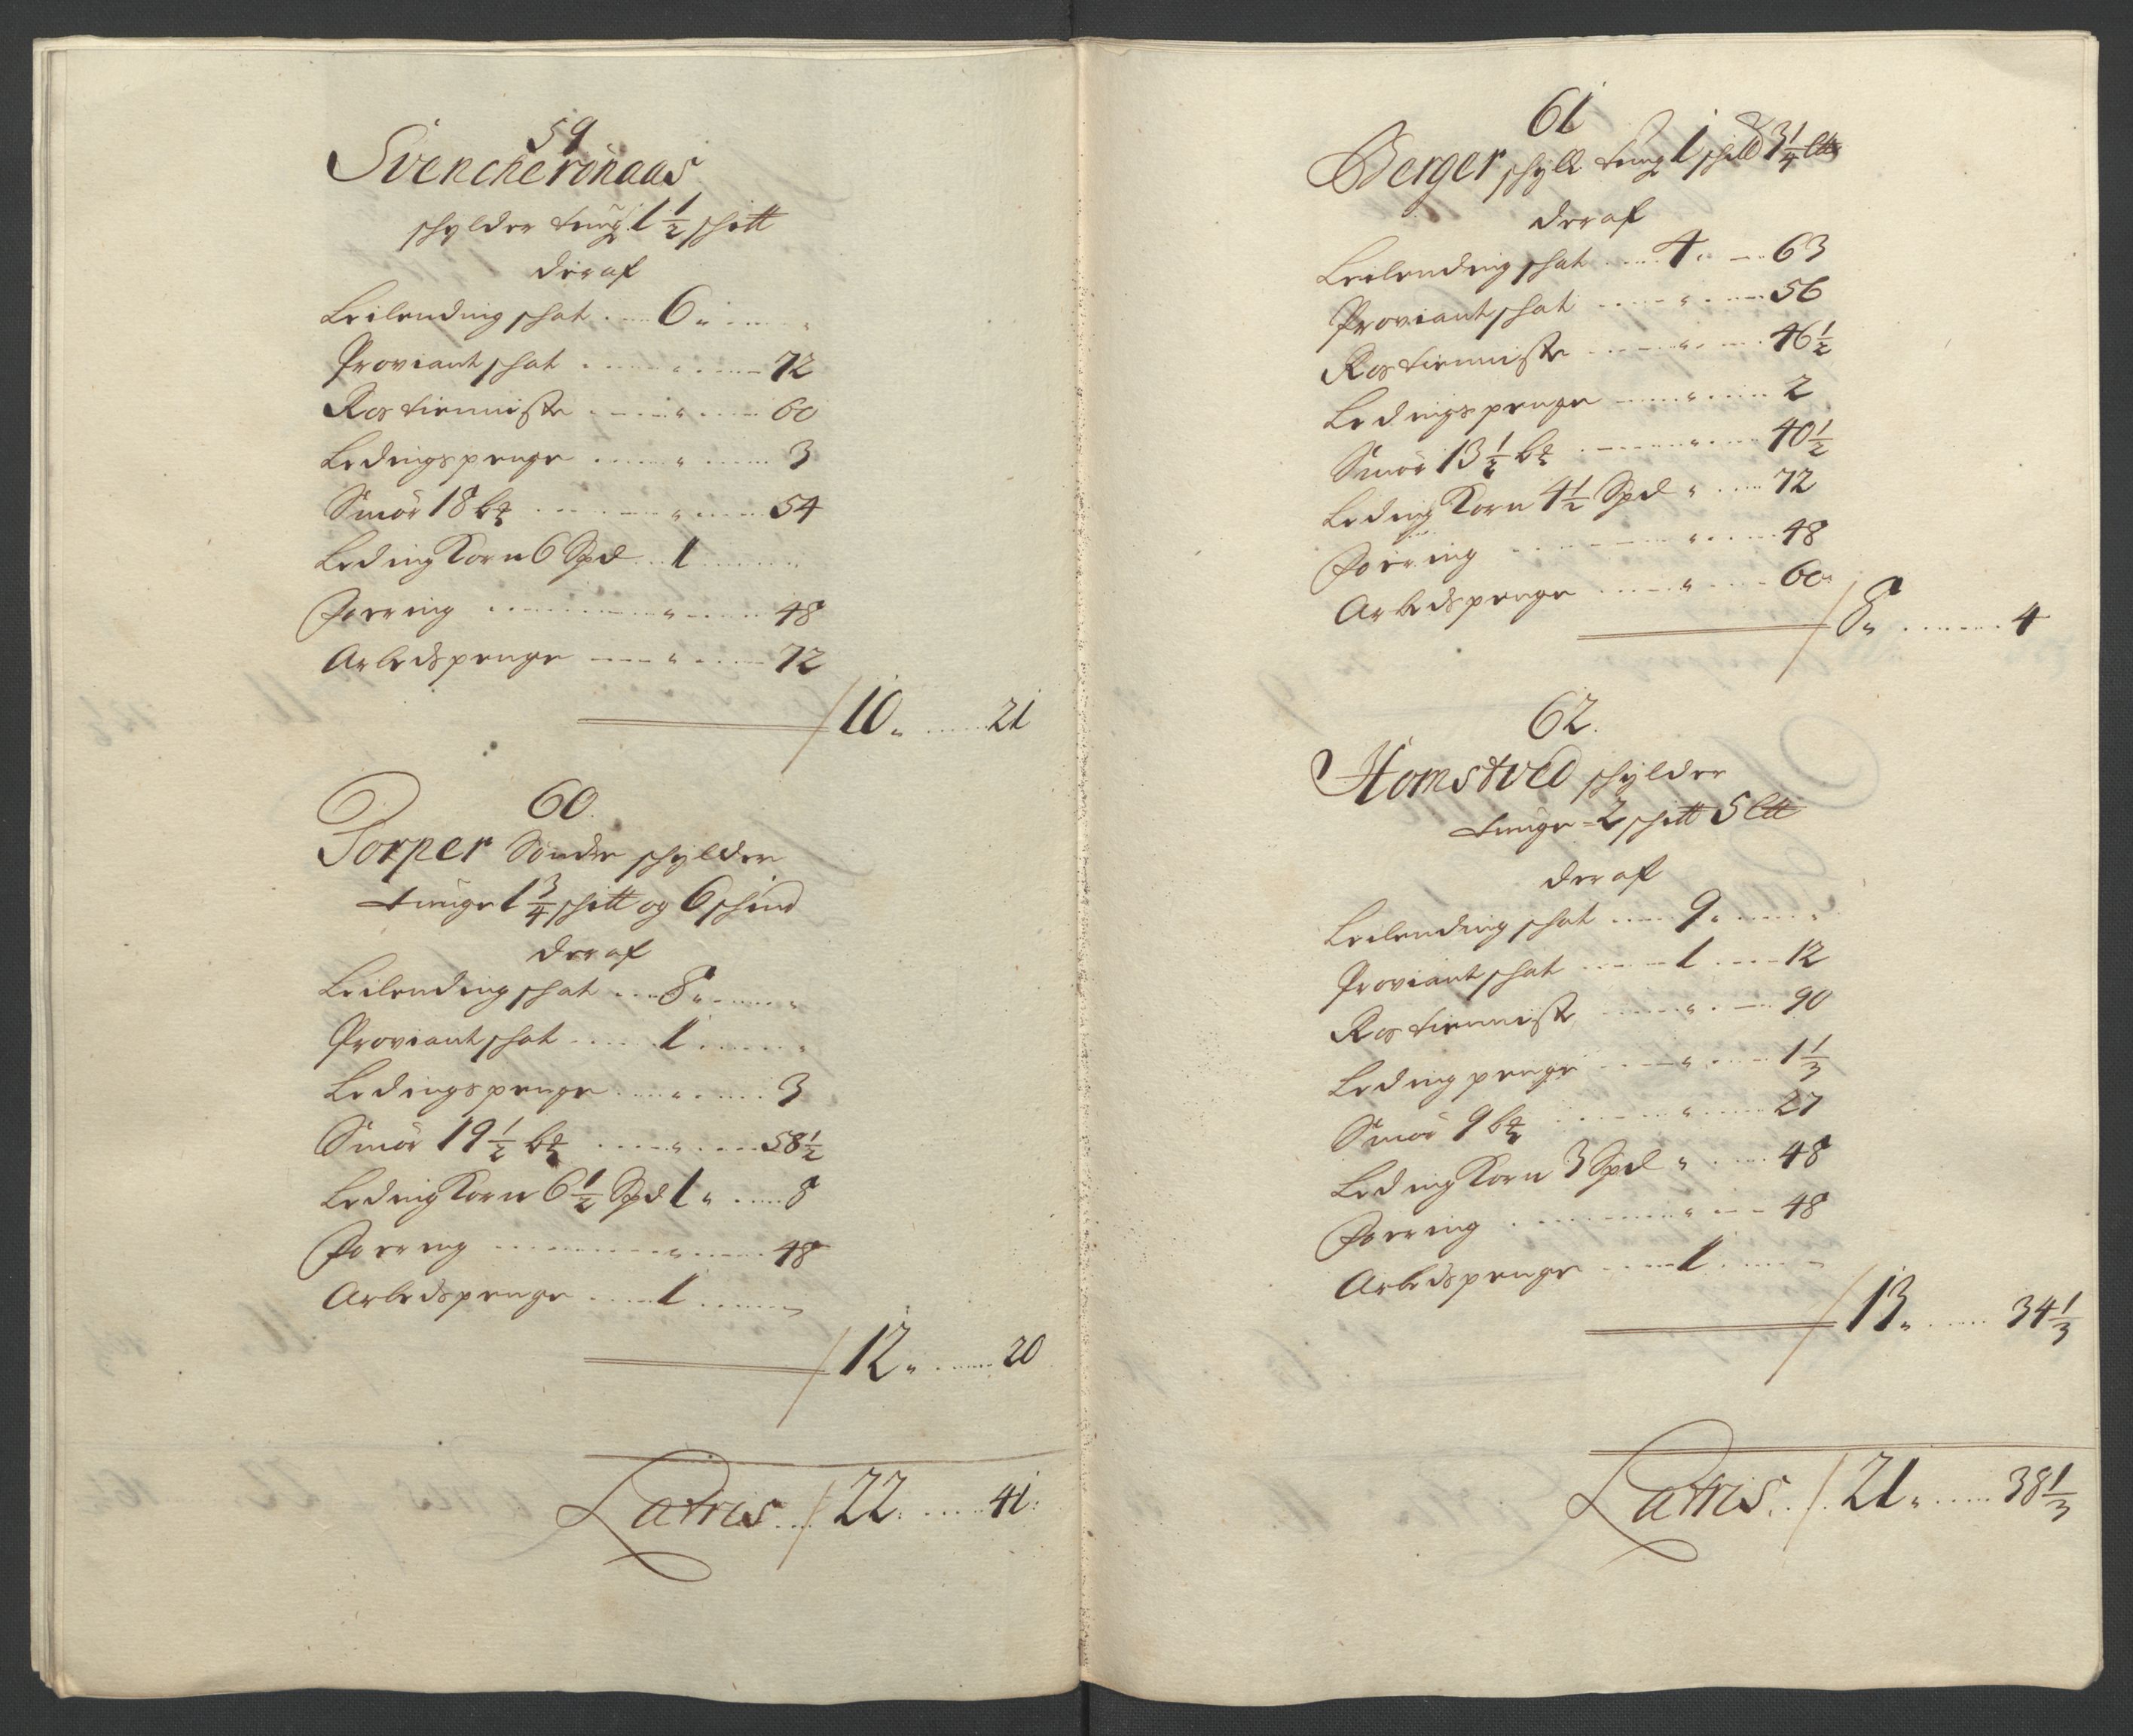 59
Svencheronaas
schylder tung 1 1/2 schitt
deraf
Leilending schat .... 6 " .... "
Proviant schat ..... " .... 72
Ros tienniste ..... " .... 60
Ledingspenge ..... " .... 3
Smör 18 b ..... " .... 54
Leding Korn 6 Spd .. 1 ......
Foering ..... " .... 48
Arbedspenge ..... " .... 72
10 " .... 21
60.
Torper Söndre schylder
tunge 1 3/4 schitt og 6 schind
deraf
Leilending schat ... 8 " .... "
Proviant schat ..... 1 ..... "
Ledingspenge ..... " .... 3
Smör 19 1/2 b ..... " .... 58 1/2
Leding Korn 6 1/2 Spd 1 " .... 8
Foering ..... " .... 48
Arbedspenge ..... 1 .....
12 " .... 20
Latris ... 22 . .... 41:
61
Berger schyld tung 1 3 1/4
deraf
Leilending schat .... 4 " .. 63
Proviant schat ..... " .... 56
Ros tienniste ..... " .... 46 1/2
Ledingspenge ..... " .... 2
Smör 13 1/2 b ..... " .... 40 1/2
Leding Korn 4 1/2 Spd " .... 72
Foering ..... " .... 48
Arbedspenge ..... " .... 60
8 " .... 4
62.
Homstved schylder
tunge = 2 schitt 5 ltt
deraf
Leilending schat .... 9 " .... "
Proviant schat ..... 1 .... 12
Ros tienniste ..... " .... 90
Leding penge ..... " .... 1 1/3
Smör 9 b ..... " .... 27
Leding Korn 3 Spd " .... 48
Foering ..... " .... 48
Arbedspenge ..... 1 .....
13 " .... 34 1/3
Latris ... 21 " .... 38 1/3